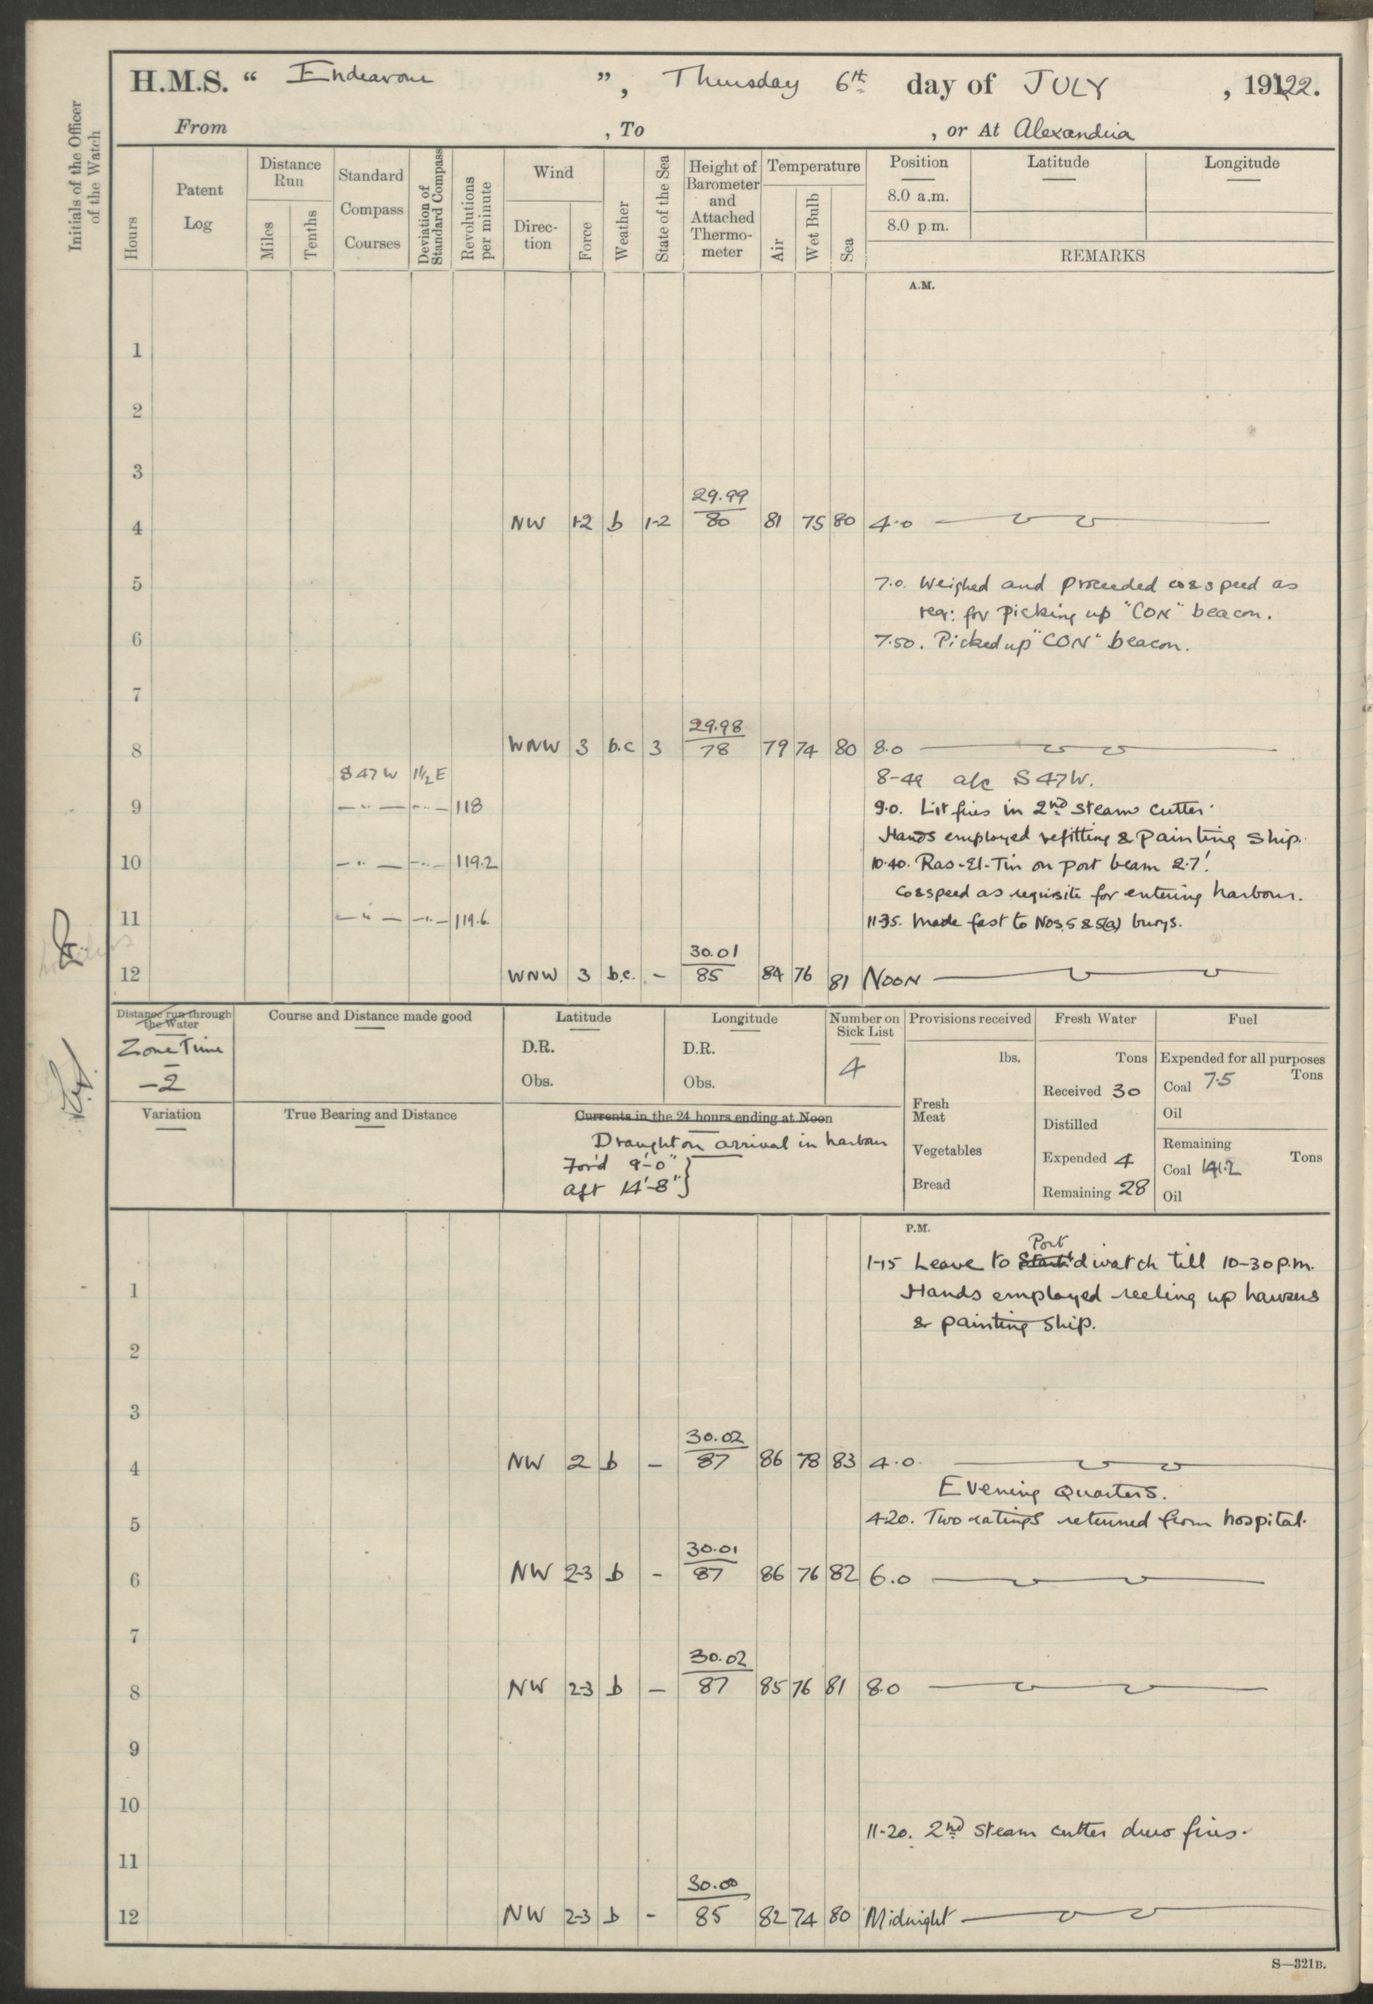 H.M.S. “ Endeavour ”, Thursday 6th day of JULY, 1922.
From , To , or At Alexandria
Initials of the Officer of the Watch
Hours
Patent Log
Distance Run
Miles
Tenths
Standard Compass Courses
Deviation of Standard Compass
Revolutions per minute
Wind
Direction
Force
Weather
State of the Sea
Height of Barometer and Attached Thermometer
Temperature
Air
Wet Bulb
Sea
Position Latitude Longitude
8.0 a.m.
8.0 p.m.
REMARKS
A.M.
1
2
3
29.99
4 NW 1-2 b 1-2 80 81 75 80 4.0
5 7.0. Weighed and proceeded co & speed as
req: for picking up "CON" beacon.
6 7.50. Picked up "CON" beacon.
7
29.98
8 WNW 3 b.c 3 78 79 74 80 8.0
S 47 W 1½ E 8-49 a/c S 47 W.
9 —"— —"— 118 9.0. Lit fires in 2nd steam cutter.
Hands employed refitting & painting ship.
10 —"— —"— 119.2 10.40. Ras-El-Tin on port beam 2.7'.
Co & speed as requisite for entering harbour.
11 —"— —"— 119.6 11-35. Made fast to Nos. 5 & 5(a) buoys.
30.01
12 WNW 3 b.c. - 85 84 76 81 NOON
Distance run through the Water
Zone Time
-2
Course and Distance made good
Latitude
D.R.
Obs.
Longitude
D.R.
Obs.
Number on Sick List
4
Provisions received
lbs.
Fresh Meat
Vegetables
Bread
Fresh Water
Tons
Received 30
Distilled
Expended 4
Remaining 28
Fuel
Expended for all purposes
Coal 7.5 Tons
Oil
Remaining
Coal 141.2 Tons
Oil
Variation
True Bearing and Distance
Currents in the 24 hours ending at Noon
Draught on arrival in harbour
For'd 9'-0"
aft 14'-8"
P.M.
Port
1-15 Leave to Starb'd watch till 10-30 p.m.
1 Hands employed reeling up hawsers
& painting ship.
2
3
30.02
4 NW 2 b - 87 86 78 83 4.0.
Evening Quarters.
5 4.20. Two ratings returned from hospital.
30.01
6 NW 2-3 b - 87 86 76 82 6.0
7
30.02
8 NW 2-3 b - 87 85 76 81 8.0
9
10
11-20. 2nd steam cutter drew fires.
11
30.00
12 NW 2-3 b - 85 82 74 80 Midnight
S—321B.